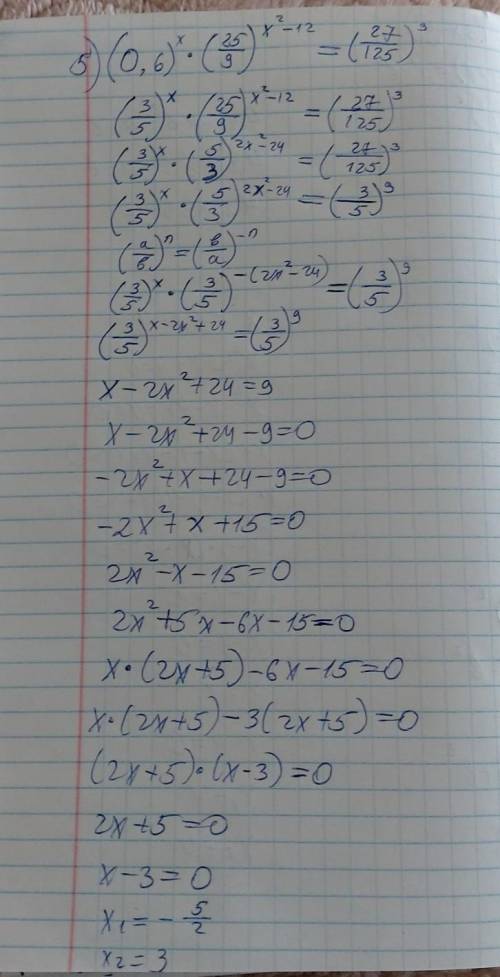 5) (0,6)^x · (25/9)^(x²-12) = (27/125)^3
(3/5)^x · (25/9)^(x²-12) = (27/125)^3
(3/5)^x · (5/3)^(2x²-24) = (27/125)^3
(3/5)^x · (5/3)^(2x²-24) = (3/5)^9
(a/в)^n = (в/a)^-n
(3/5)^x · (3/5)^-(2x²-24) = (3/5)^9
(3/5)^(x-2x²+24) = (3/5)^9
x - 2x² + 24 = 9
x - 2x² + 24 - 9 = 0
-2x² + x + 24 - 9 = 0
-2x² + x + 15 = 0
2x² - x - 15 = 0
2x² + 5x - 6x - 15 = 0
x · (2x+5) - 6x - 15 = 0
x · (2x+5) - 3(2x+5) = 0
(2x+5) · (x-3) = 0
2x + 5 = 0
x - 3 = 0
x₁ = - 5/2
x₂ = 3